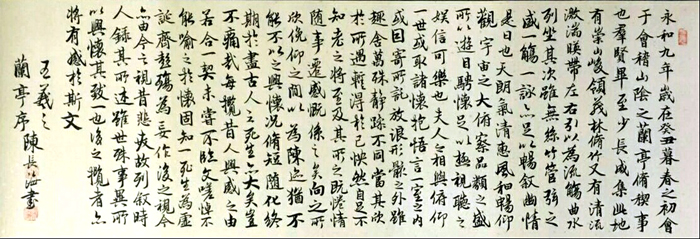 永和九年歲在癸丑暮春之初會
于會稽山陰之蘭亭脩稧事
也羣賢畢至少長咸集此地
有崇山峻領茂林脩竹又有清流
激湍暎帶左右引以為流觴曲水
列坐其次雖無絲竹管弦之
盛一觴一詠亦足以暢敘幽情
是日也天朗氣清惠風和暢仰
觀宇宙之大俯察品類之盛
所以遊目騁懷足以極視聽之
娛信可樂也夫人之相與俯仰
一世或取諸懷抱悟言一室之內
或因寄所託放浪形骸之外雖
趣舍萬殊靜躁不同當其欣
於所遇暫得於己怏然自足不
知老之將至及其所之既惓情
隨事遷感慨係之矣向之所
欣俛仰之間以為陳迹猶不
能不以之興懷況脩短隨化終
期於盡古人云死生亦大矣豈
不痛哉每攬昔人興感之由
若合一契未嘗不臨文嗟悼不
能喻之於懷固知一死生為虛
誕齊彭殤為妄作後之視今
亦由今之視昔悲夫故列敘時
人錄其所述雖世殊事異所
以興懷其致一也後之攬者亦
將有感於斯文
王羲之
蘭亭序陳長海書